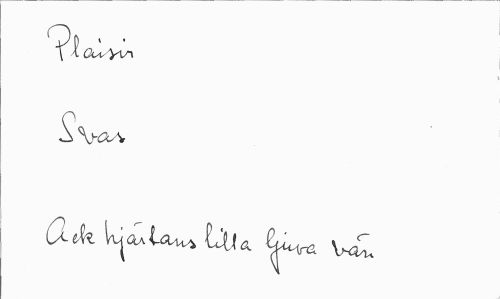 Plaisir
Svas
Ack hjärtans lilla ljuva vän